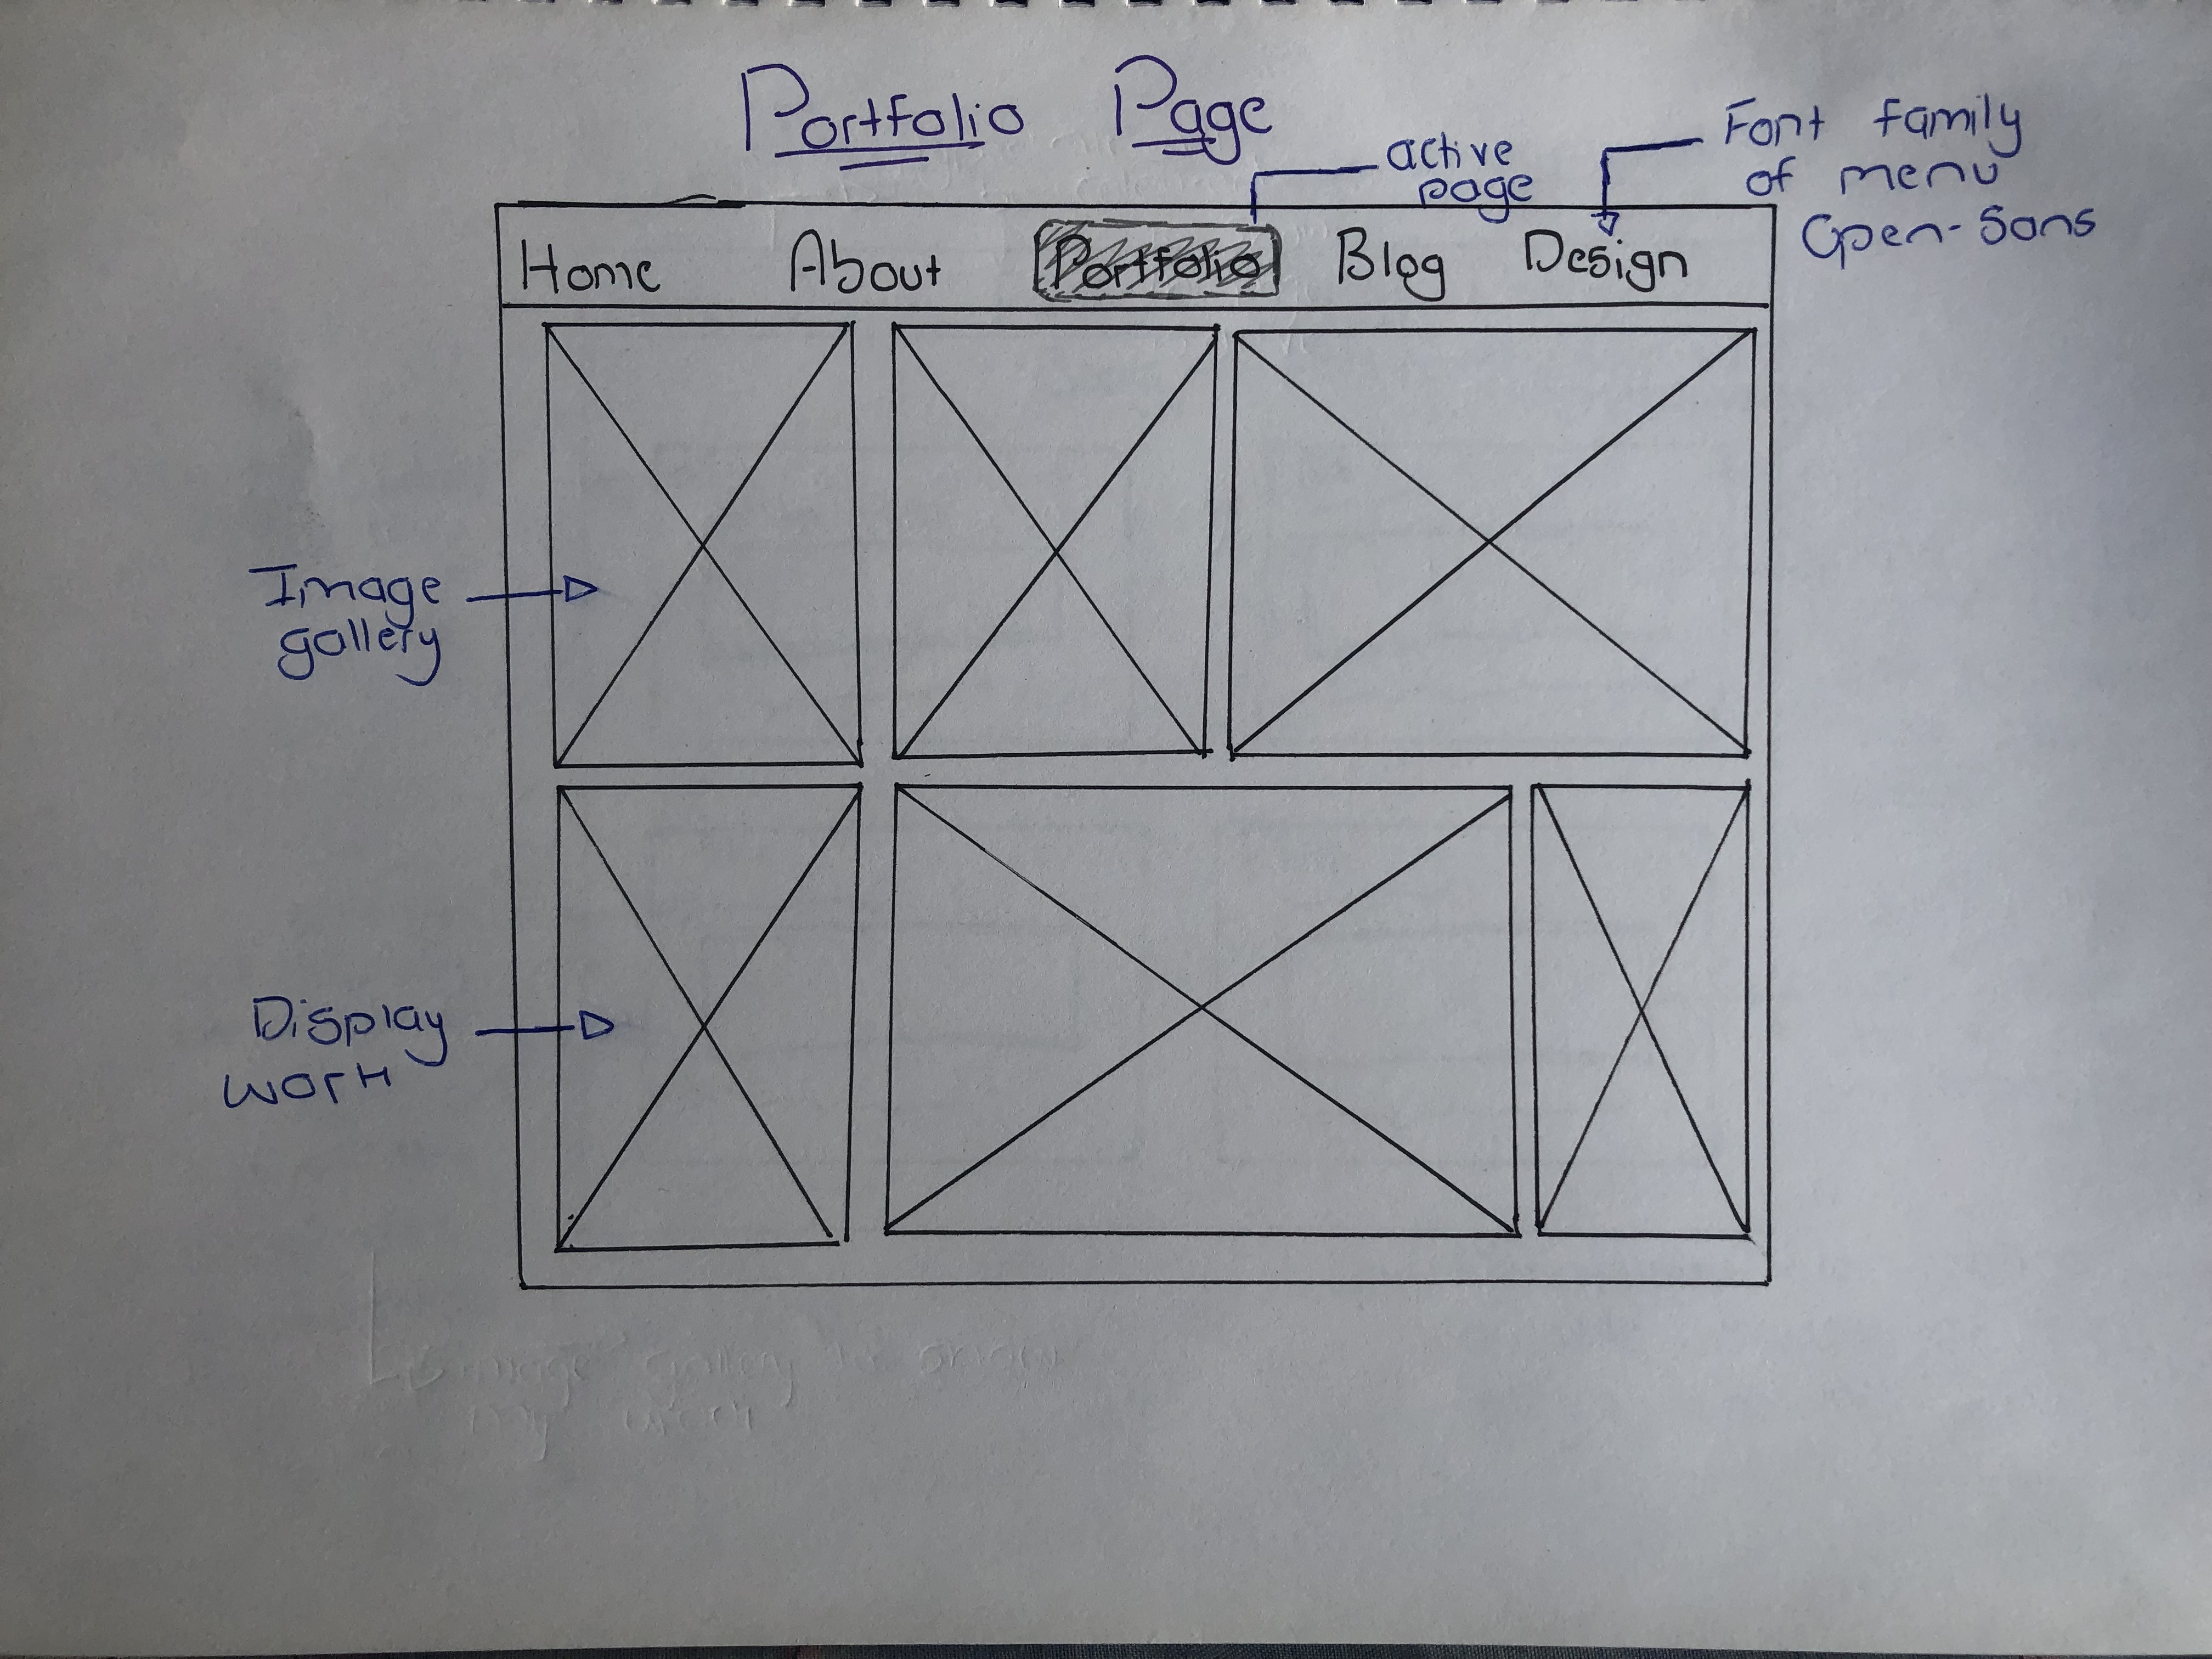 Portfolio Page
active
page
Font family
of menu
Open-Sans
Home About Portfolio Blog Design
Image
gallery
Display
work
image gallery to show
my work